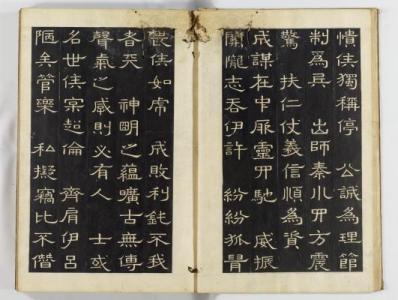 憤侯獨稱停 公誠為理節
制為兵 出師秦川四方震
驚 扶仁仗義信順為資
成謀在中 四馳 威振
關隴志吞伊許 紛紛狐鼠
畏侯如虎 成敗利鈍不我
者天 神明之蘊曠古無傳
聲氣之感則必有人 士或
名世侯寔超倫 齊肩伊呂
陋矣管樂 私擬竊比不僭